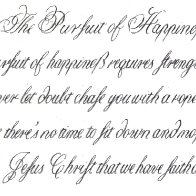 The Purſuit of Happineſ
rſuit of happineſs requires ſtreng
ver let doubt chaſe you with a rope
there's no time to ſit down and mop
Jeſus Chriſt that we have faith